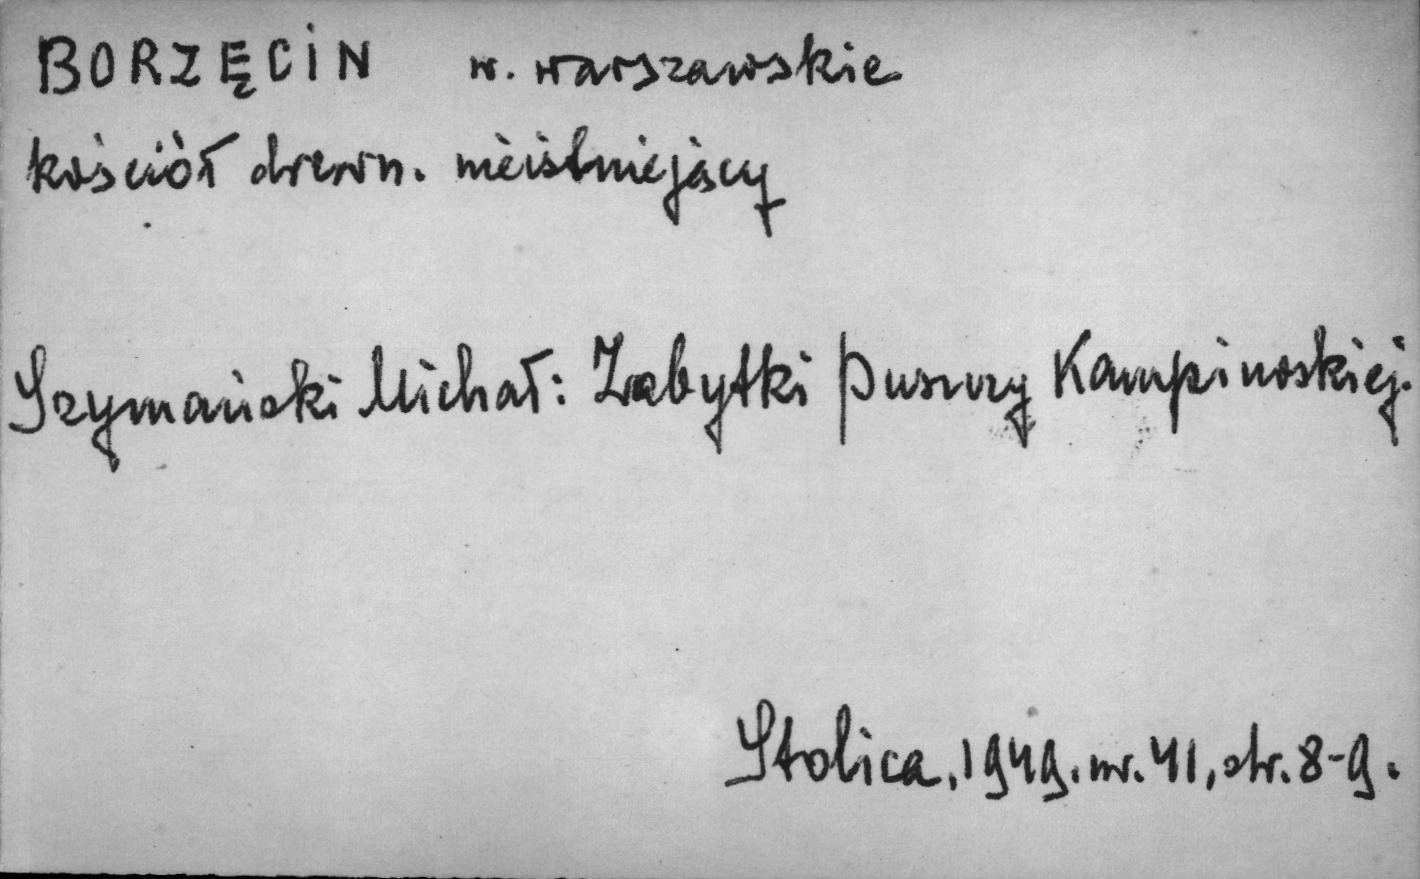 BORZĘCIN w. warszawskie
kościół drewn. nieistniejący
Szymański Michał: Zabytki Puszczy Kampinoskiej.
Stolica, 1949. nr. 41, str. 8-9.